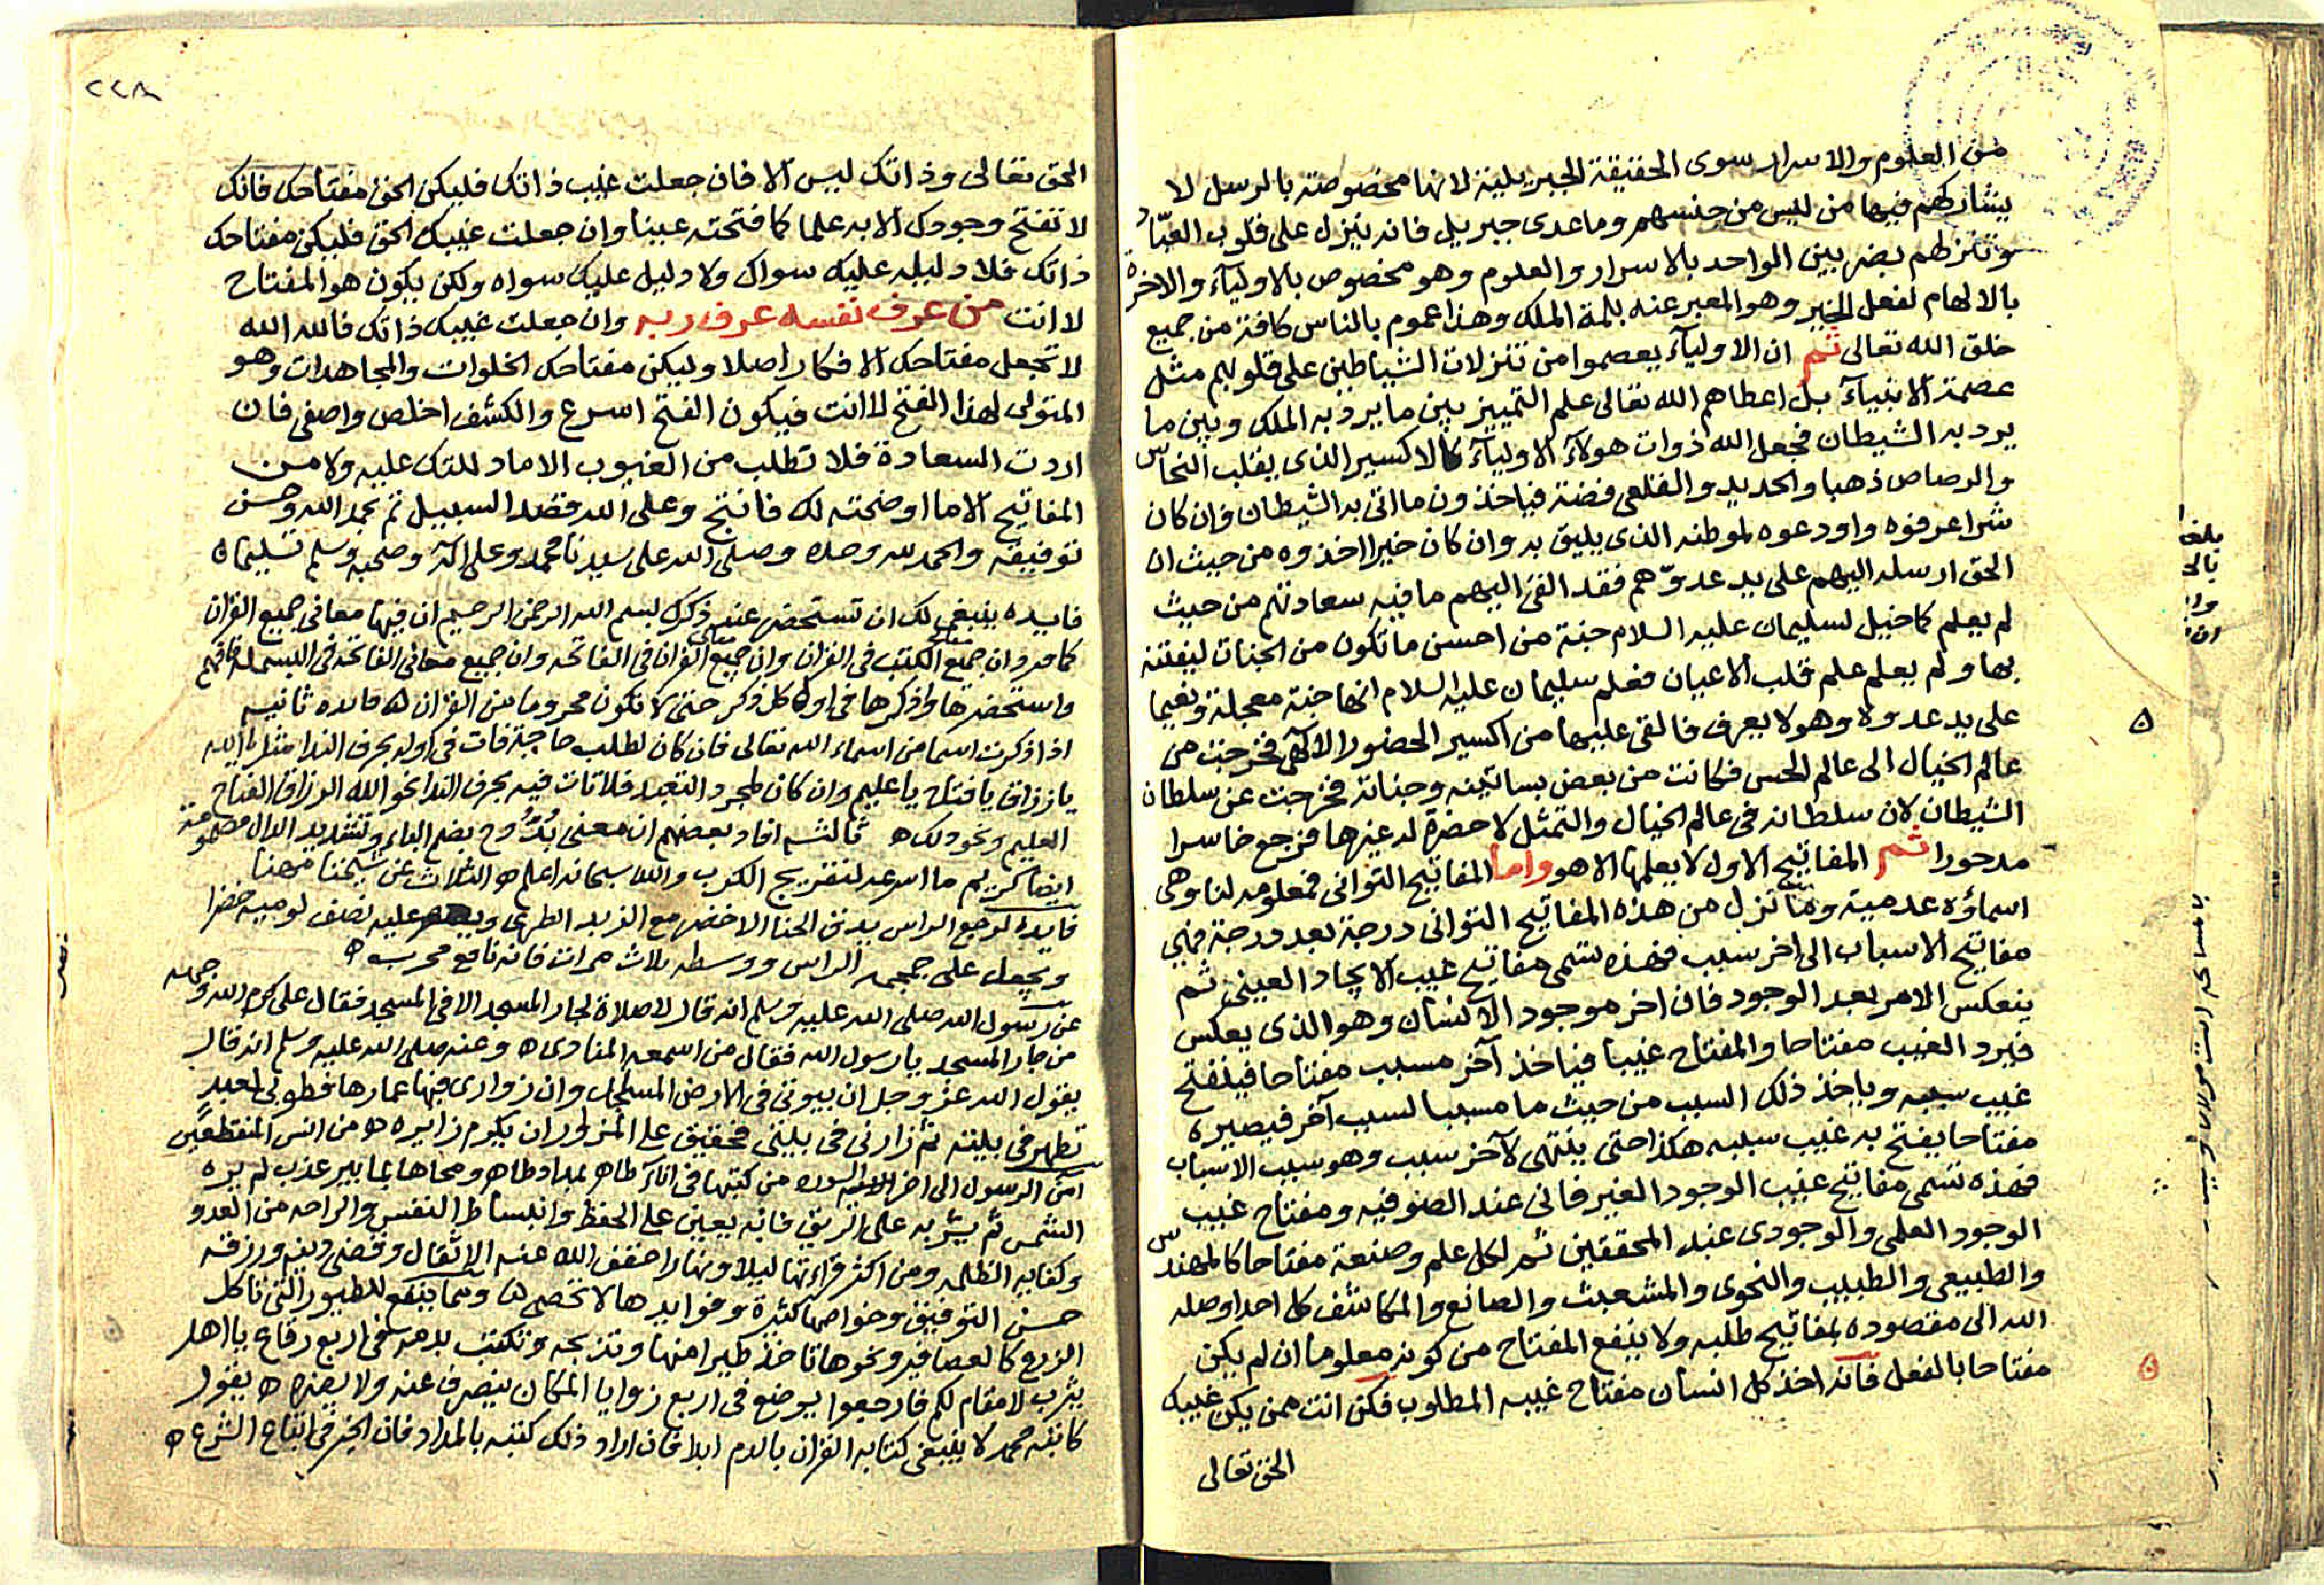 من العلوم والاسرار سوى الحقيقة الجبريلية لانها مخصوصة بالرسل لا
يشاركهم فيها من ليس من جنسهم وما عدى جبريل فانه ينزل على قلوب العبّاد
وتنزلهم بضربين الواحد بالاسرار والعلوم وهو مخصوص بالاولياء والاخرة
بالالهام لفعل الخير وهو المعبر عنه بلمة الملك وهذا عموم بالناس كافة من جميع
خلق الله تعالى ثم ان الاولياء يعصموا من تنزلات الشياطين على قلوبهم مثل
عصمة الانبياء بل اعطاهم الله تعالى علم التمييز بين ما يرد به الملك وبين ما
يرد به الشيطان فجعل الله ذوات هولاء الاولياء كالاكسير الذى يقلب النحاس
والرصاص ذهبا والحديد والقلعى فضة فياخذون ما اتى به الشيطان فان كان
شرا عرفوه واودعوه لموطنه الذى يليق به وان كان خيرا اخذوه من حيث ان
الحق ارسله اليهم على يد عدوّهم فقد القى اليهم ما فيه سعادتهم من حيث
لم يعلم كما خيل لسليمان عليه السلام جنة من احسن ما تكون من الجنات ليفتنه
بها ولم يعلم علم قلب الاعيان فعلم سليمان عليه السلام انها جنة معجلة ونعيما
على يد عدوه وهو لا يعرف فالقى عليها من اكسير الحضور الالهى فخرجت من
عالم الخيال الى عالم الحس فكانت من بعض بساتينه وجناته فخرجت عن سلطان
الشيطان لان سلطانه فى عالم الخيال والتمثل لا حضرة له غيرها فرجع خاسرا
مدحورا ثم المفاتيح الاول لا يعلمها الا هو واما المفاتيح الثوانى فمعلومه لنا وهى
اسماؤه عدمية وما تنزل من هذه المفاتيح الثوانى درجة بعد درجة فهى
مفاتيح الاسباب الى اخر سبب فهذه تسمى مفاتيح غيب الايجاد العينى ثم
ينعكس الامر بعد الوجود فان اخر موجود الانسان وهو الذى يعكس
فيرد الغيب مفتاحا والمفتاح غيبا فياخذ آخر مسبب مفتاحا فينفتح
غيب سببه وياخذ ذلك السبب من حيث ما مسببا لسبب آخر فيصيره
مفتاحا يفتح به غيب سببه هكذا حتى ينتهى لآخر سبب وهو سبب الاسباب
فهذه تسمى مفاتيح غيب الوجود الغير فانى عند الصوفيه ومفتاح غيب
الوجود العلمى والوجودى عند المحققين ثم لكل علم وصنعة مفتاحا كالمهندس
والطبيعى والطبيب والنحوى والمشعبث والصانع والمكاشف كل احد اوصله
الله الى مقصوده بمفاتيح طلبه ولا ينفع المفتاح من كونه معلوما ان لم يكن
مفتاحا بالفعل فانه اخذ كل انسان مفتاح غيبه المطلوب فكن انت ممن يكن غيبك
الحق تعالى
٢٢٨
الحق تعالى وذاتك ليس الا فان جعلت غيب ذاتك فليكن الحق مفتاحك فانك
لا تفتح وجودك الا به علما كما فتحته عينا وان جعلت غيبك الحق فليكن مفتاحك
ذاتك فلا دليله عليك سواك ولا دليل عليك سواه ولكن يكون هو المفتاح
لا انت من عرف نفسه عرف ربه وان جعلت غيبك ذاتك فالله الله
لا تجعل مفتاحك الافكار اصلا وليكن مفتاحك الخلوات والمجاهدات وهو
المتولى لهذا الفتح لا انت فيكون الفتح اسرع والكشف اخلص واصفى فان
اردت السعادة فلا تطلب من الغيوب الا ما دللتك عليه ولا من
المفاتيح الا ما اوضحته لك فانتج وعلى الله قصد السبيل تم بحمد الله وحسن
توفيقه والحمد لله وحده وصلى الله على سيدنا محمد وعلى اله وصحبه وسلم تسليما
فايده ينبغى لك ان تستحضر عند ذكرك بسم الله الرحمن الرحيم ان فيها معانى جميع القران
كما مر وان جميع معانى الكتب فى القران وان جميع معانى القران فى الفاتحه وان جميع معانى الفاتحه فى البسملة فافهم
واستحضرها واذكرها فى اول كل ذكر حتى لا تكون محروما من القران ه فايده ثانيه
اذا ذكرت اسما من اسماء الله تعالى فان كان لطلب حاجة فات فى اوله بحرف الندا مثل يا الله
يا رزاق يا فتاح يا عليم وان كان لمجرد التعبد فلا تات فيه بحرف الندا نحو الله الرزاق الفتاح
العليم ونحو ذلك ه ثالثه افاد بعضهم ان معنى بُدُّوح بضم الباء وتشديد الدال مضمومة
ايضا كريم ما اسرعه لتفريج الكرب والله سبحانه اعلم ه الثلاث عن شيخنا مهنا
فايدة لوجع الراس يدق الحنا الاخضر مع الزبد الطرى عليه نصف لوميه خضرا
وتجعل على جمجمه الراس ووسطه ثلاث مرات فانه نافع مجرب ه
عن رسول الله صلى الله عليه وسلم انه قال لا صلاة لجار المسجد الا فى المسجد فقال على كرم الله وجهه
من جار المسجد يا رسول الله فقال من اسمعه المنادى ه وعنه صلى الله عليه وسلم انه قال
يقول الله عز وجل ان بيوتى فى الارض المساجد وان زوارى فيها عمارها فطوبى لعبد
تطهر فى بيته ثم زارنى فى بيتى فحقيق على المزور ان يكرم زايره ه من انس المنقطعين
امن الرسول الى اخر السوره من كتبها فى اناء طاهر بمداد طاهر ومحاها بماء بير عذب لم يره
الشمس ثم يشربه على الريق فانه يعين على الحفظ وانبساط النفس والراحه من العدو
وكفايه الظلمه ومن اكثر قراءتها ليلا ونهارا خفف الله عنه الاثقال وقضى دينه ورزقه
حسن التوفيق وخواصها كثيرة وفوايدها لا تحصى ه ومما ينفع للطيور التى تاكل
الزرع كالعصافير ونحوها تاخذ طيرا منها وتذبحه وتكتب بدمه فى اربع رقاع يا اهل
يثرب لا مقام لكم فارجعوا يوضع فى اربع زوايا المكان ينصرف عنه ولا يضره ه يقول
كاتبه محمد لا ينبغى كتابه القران بالدم ابدا فان اراد ذلك كتبه بالمداد فان الخير فى اتباع الشرع ه